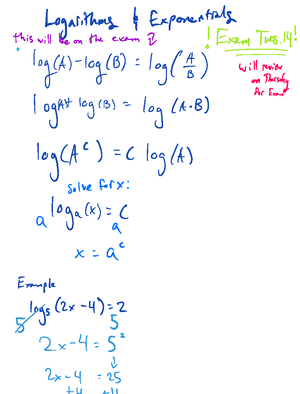 Logarithms & Exponentials
this will be on the exam
! Exam Tues. 14!
will review
on Thursday
log(A) - log(B) = log(A/B)
log(A)+ log(B) = log (A·B)
log(A^c) = C log(A)
solve for x:
a^log_a(x) = a^C
x = a^c
Example
5^log_5 (2x-4) = 5^2
2x-4 = 5^2
↓
2x-4 = 25
+4 +4